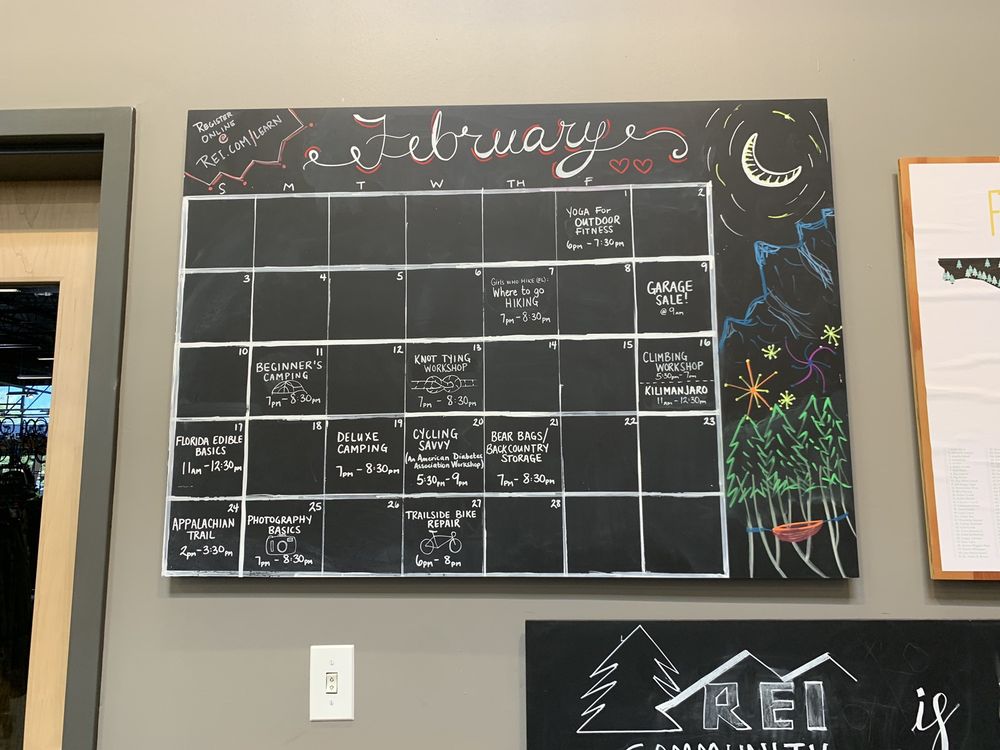 REGISTER
ONLINE
@
REI.COM/LEARN
February
S M T W TH F
1 2
YOGA FOR
OUTDOOR
FITNESS
6pm - 7:30pm
3 4 5 6 7 8 9
Girls WHO HIKE (FL):
Where to go
HIKING
7pm - 8:30pm
GARAGE
SALE!
@ 9am
10 11 12 13 14 15 16
BEGINNER'S
CAMPING
7pm - 8:30pm
KNOT TYING
WORKSHOP
7pm - 8:30pm
CLIMBING
WORKSHOP
5:30pm - 7pm
KILIMANJARO
11am - 12:30pm
17 18 19 20 21 22 23
FLORIDA EDIBLE
BASICS
11am - 12:30pm
DELUXE
CAMPING
7pm - 8:30pm
CYCLING
SAVVY
(An American Diabetes
Association Workshop)
5:30pm - 9pm
BEAR BAGS/
BACKCOUNTRY
STORAGE
7pm - 8:30pm
24 25 26 27 28
APPALACHIAN
TRAIL
2pm - 3:30pm
PHOTOGRAPHY
BASICS
7pm - 8:30pm
TRAILSIDE BIKE
REPAIR
6pm - 8pm
REI is
COMMUNITY